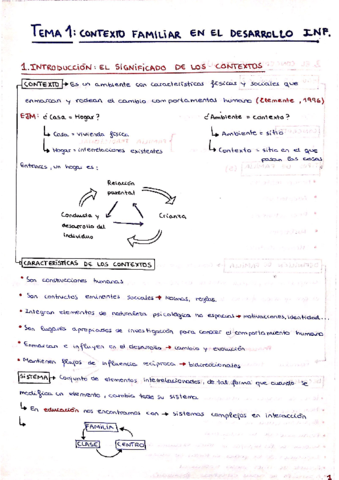 TEMA 1: CONTEXTO FAMILIAR EN EL DESARROLLO INF.
1. INTRODUCCIÓN: EL SIGNIFICADO DE LOS CONTEXTOS
CONTEXTO → Es un ambiente con características físicas y sociales que
enmarcan y rodean el cambio comportamental humano (Clemente, 1996)
EJM: ¿Casa = Hogar? ¿Ambiente = contexto?
↳ Casa = vivienda física ↳ Ambiente = sitio
↳ Hogar = interrelaciones existentes ↳ Contexto = sitio en el que
pasan las cosas
Entonces, un hogar es:
Relación
parental
Conducta y
desarrollo del
individuo
Crianza
CARACTERÍSTICAS DE LOS CONTEXTOS
• Son construcciones humanas
• Son contructos eminentes sociales → Normas, reglas.
• Integran elementos de naturaleza psicológica no espacial → motivaciones, identidad...
• Son lugares apropiados de investigación para conocer el comportamiento humano
• Enmarcan e influyen en el desarrollo → cambio y evolución
• Mantienen flujos de influencia recíproca → bidireccionales
SISTEMA → Conjunto de elementos interrelacionados, de tal forma que cuando se
modifica un elemento, cambia todo su sistema.
↳ En educación nos encontramos con → sistemas complejos en interacción
FAMILIA
CLASE CENTRO
1